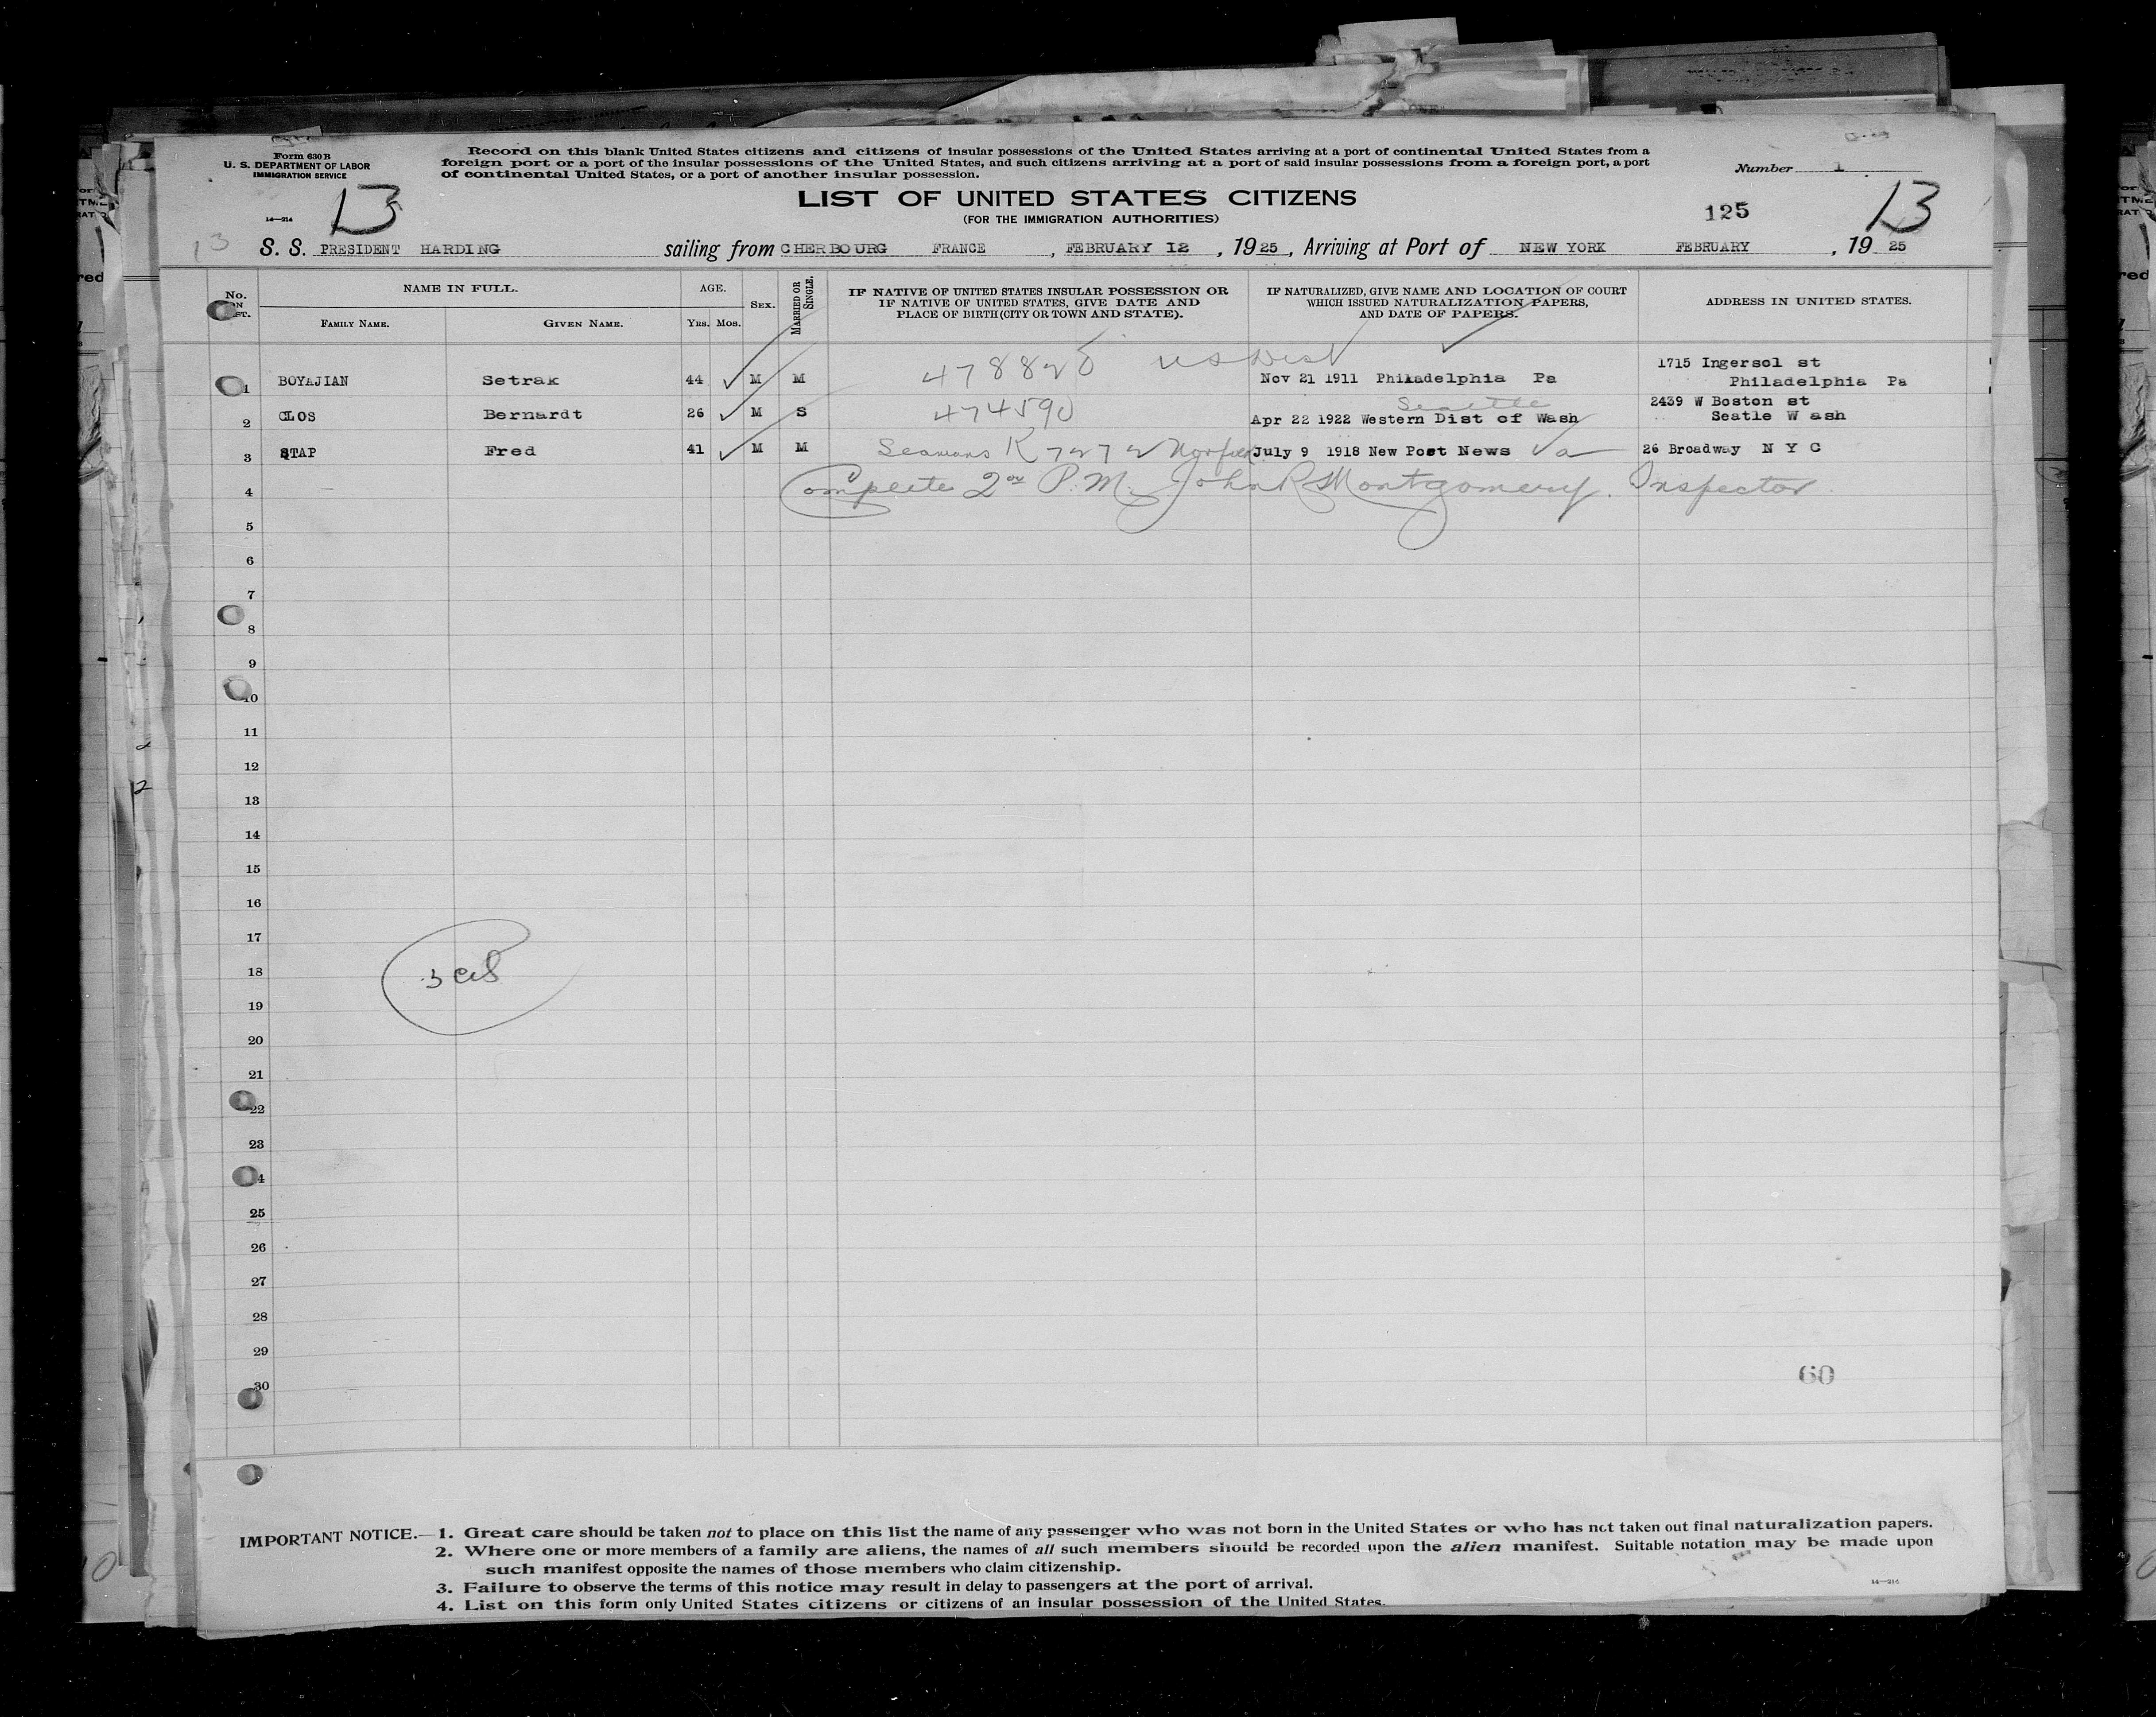 Form 630 B
U. S. DEPARTMENT OF LABOR
IMMIGRATION SERVICE
14—214
Record on this blank United States citizens and citizens of insular possessions of the United States arriving at a port of continental United States from a
foreign port or a port of the insular possessions of the United States, and such citizens arriving at a port of said insular possessions from a foreign port, a port
of continental United States, or a port of another insular possession.
Number 1
LIST OF UNITED STATES CITIZENS
(FOR THE IMMIGRATION AUTHORITIES)
13
125
13
13
S. S. PRESIDENT HARDING sailing from CHERBOURG FRANCE , FEBRUARY 12 , 1925 , Arriving at Port of NEW YORK FEBRUARY , 19 25
No. ON LIST.
NAME IN FULL.
FAMILY NAME.
GIVEN NAME.
AGE.
Yrs. Mos.
SEX.
MARRIED OR SINGLE.
IF NATIVE OF UNITED STATES INSULAR POSSESSION OR
IF NATIVE OF UNITED STATES, GIVE DATE AND
PLACE OF BIRTH (CITY OR TOWN AND STATE).
IF NATURALIZED, GIVE NAME AND LOCATION OF COURT
WHICH ISSUED NATURALIZATION PAPERS,
AND DATE OF PAPERS.
ADDRESS IN UNITED STATES.
US Dist
1715 Ingersol st
1 BOYAJIAN Setrak 44 M M 478828 Nov 21 1911 Philadelphia Pa Philadelphia Pa
Seattle
2439 W Boston st
2 CLOS Bernardt 26 M S 474590 Apr 22 1922 Western Dist of Wash Seatle W ash
3 STAP Fred 41 M M Seamans K 7272 Norfolk July 9 1918 New Post News Va 26 Broadway N Y C
4 Complete 2ou P.M. John R Montgomery. Inspector
5
6
7
8
9
10
11
12
13
14
15
16
17
18
3 cit
19
20
21
22
23
24
25
26
27
28
29
60
30
IMPORTANT NOTICE.—1. Great care should be taken not to place on this list the name of any passenger who was not born in the United States or who has not taken out final naturalization papers.
2. Where one or more members of a family are aliens, the names of all such members should be recorded upon the alien manifest. Suitable notation may be made upon
such manifest opposite the names of those members who claim citizenship.
3. Failure to observe the terms of this notice may result in delay to passengers at the port of arrival.
14—214
4. List on this form only United States citizens or citizens of an insular possession of the United States.